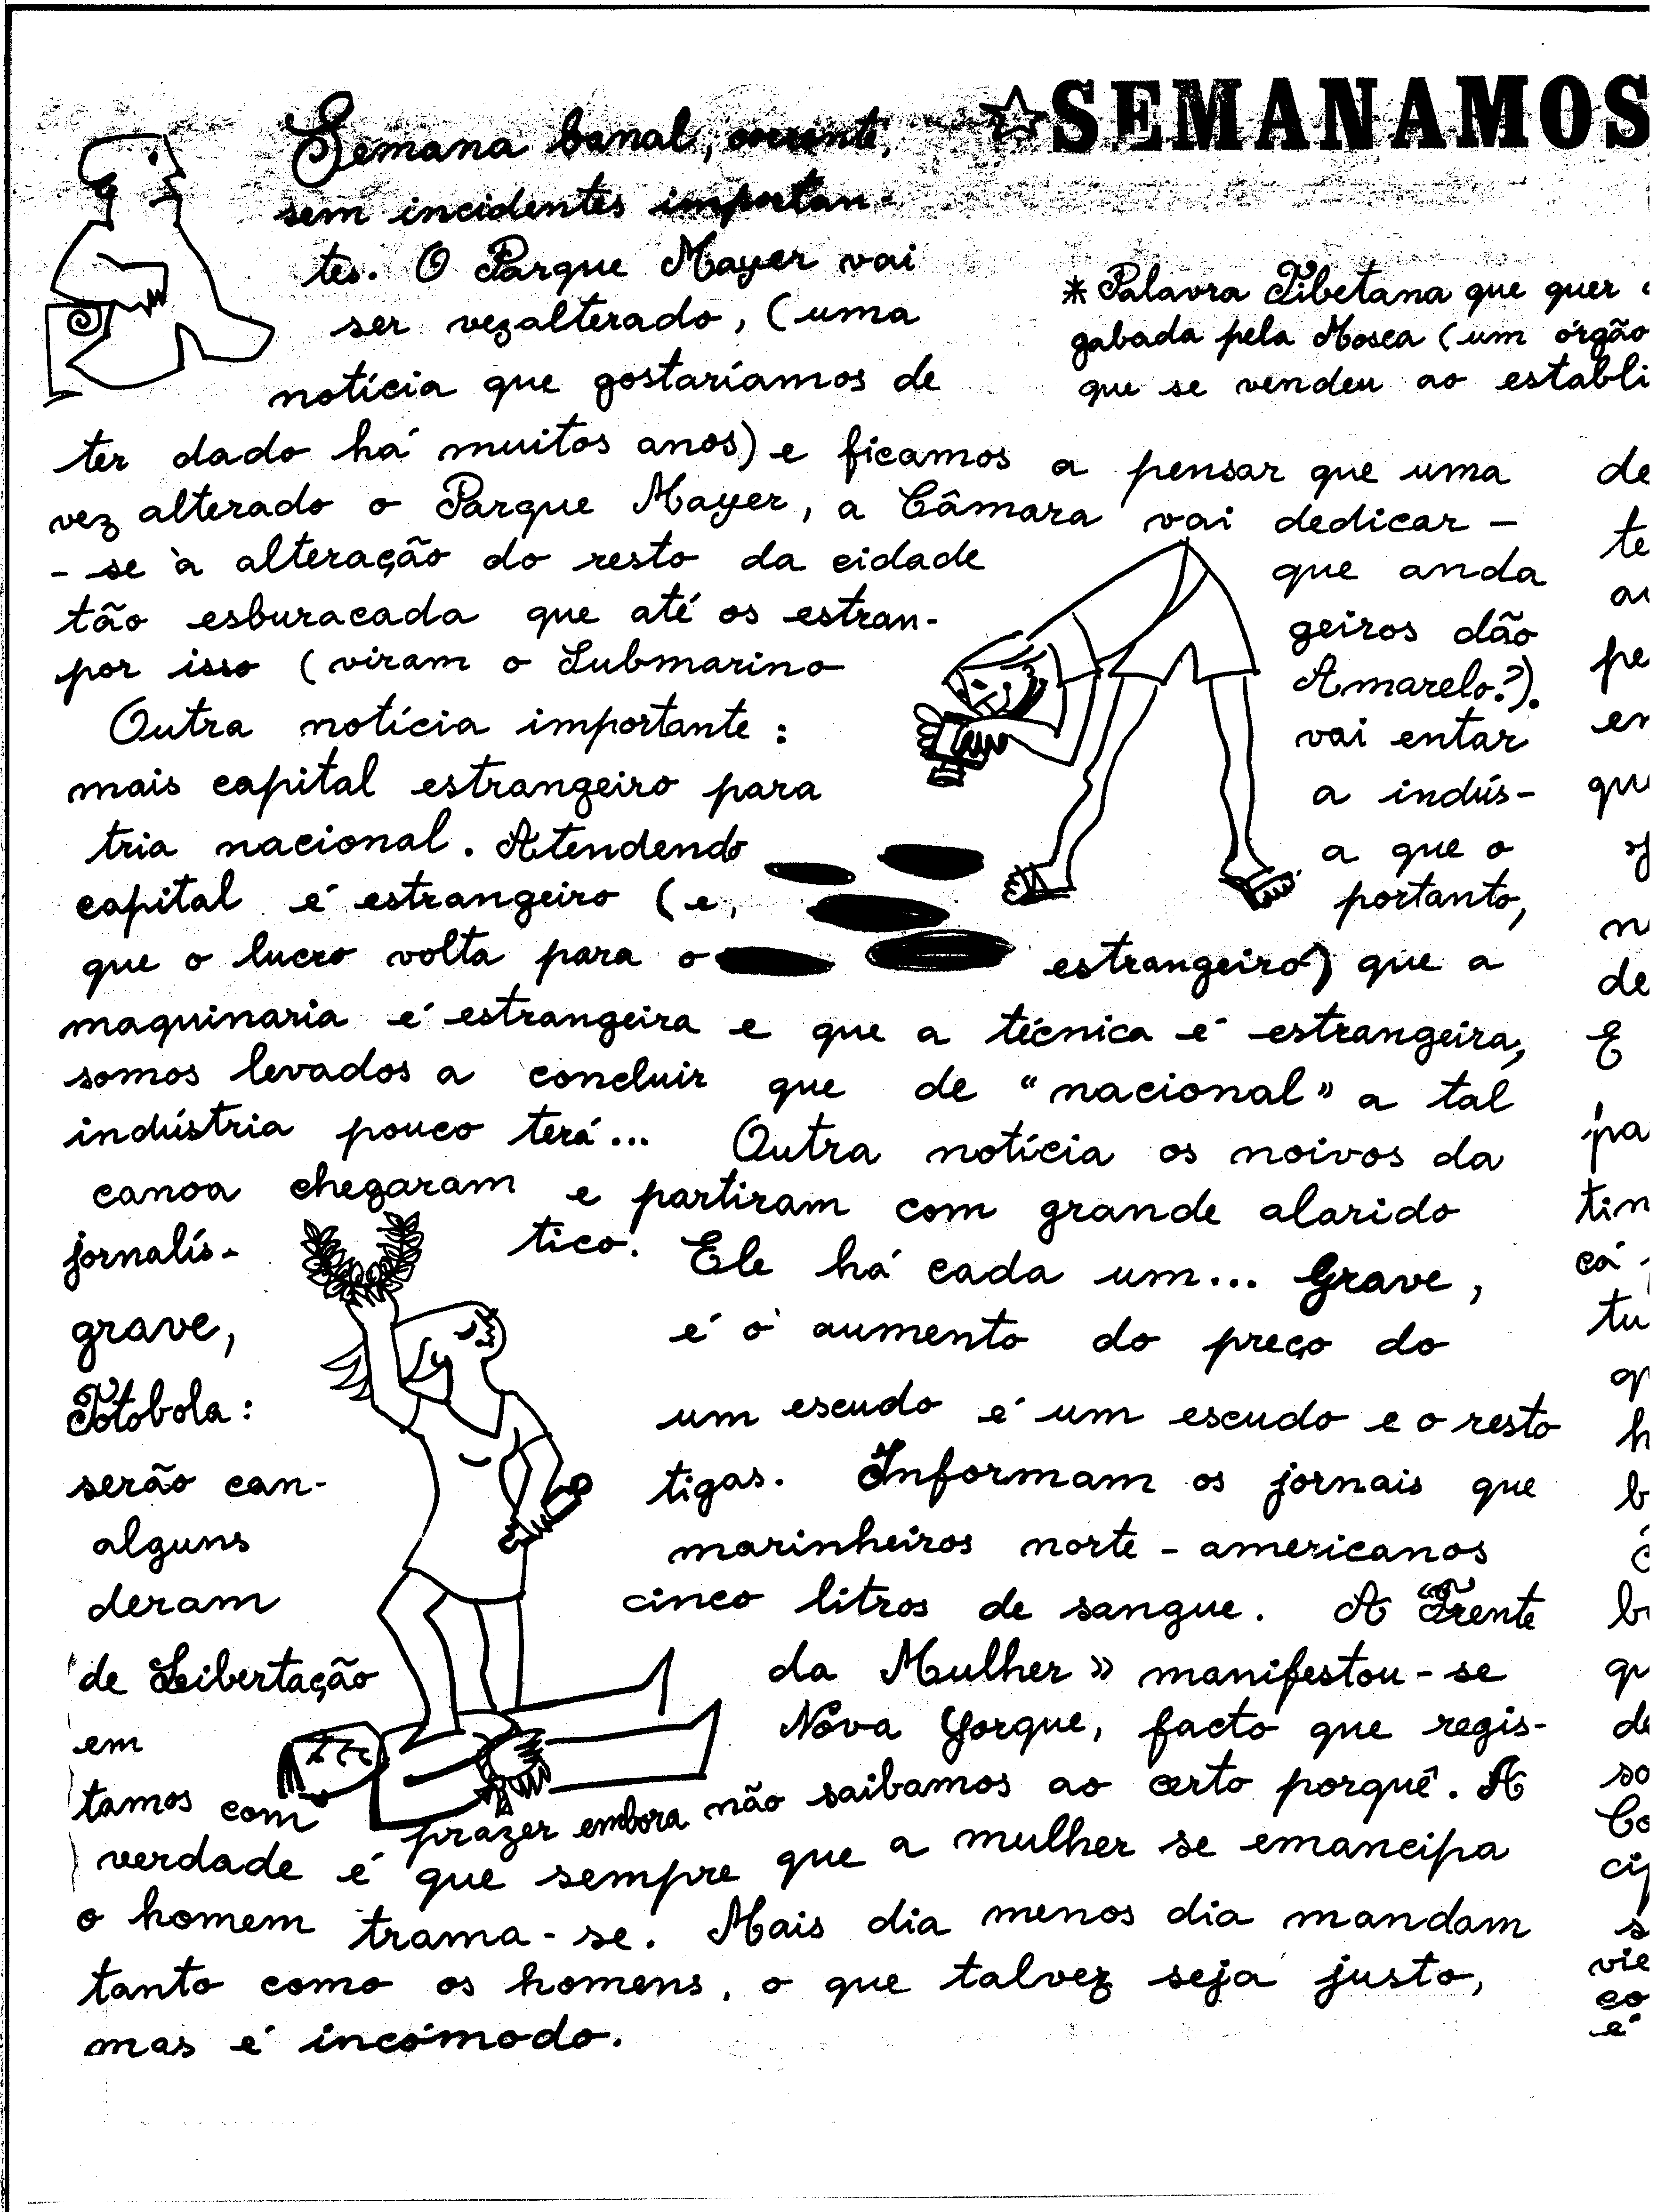 ☆SEMANAMOS
Semana banal, corrente,
sem incidentes importan-
tes. O Parque Mayer vai
ser vezalterado, (uma
notícia que gostaríamos de
ter dado há muitos anos) e ficamos a pensar que uma
vez alterado o Parque Mayer, a Câmara vai dedicar-
-se à alteração do resto da cidade que anda
tão esburacada que até os estran- geiros dão
por isso (viram o Submarino Amarelo?).
Outra notícia importante: vai entar
mais capital estrangeiro para a indús-
tria nacional. Atendendo a que o
capital é estrangeiro (e, portanto,
que o lucro volta para o estrangeiro) que a
maquinaria é estrangeira e que a técnica é estrangeira,
somos levados a concluir que de "nacional" a tal
indústria pouco terá... Outra notícia os noivos da
canoa chegaram e partiram com grande alarido
jornalís- tico. Ele há cada um... Grave,
grave, é o aumento do preço do
Totobola: um escudo é um escudo e o resto
serão can- tigas. Informam os jornais que
alguns marinheiros norte-americanos
deram cinco litros de sangue. A "Frente
de Libertação da Mulher» manifestou-se
em Nova Yorque, facto que regis-
tamos com prazer embora não saibamos ao certo porquê. A
verdade é que sempre que a mulher se emancipa
o homem trama-se. Mais dia menos dia mandam
tanto como os homens, o que talvez seja justo,
mas é incómodo.
* Palavra Tibetana que quer
gabada pela Mosca (um órgão
que se vendeu ao establi
de
te
pe
en
qu
n
de
E
pa
tin
cá
tu
h
b
qu
de
so
Co
s
vie
co
é